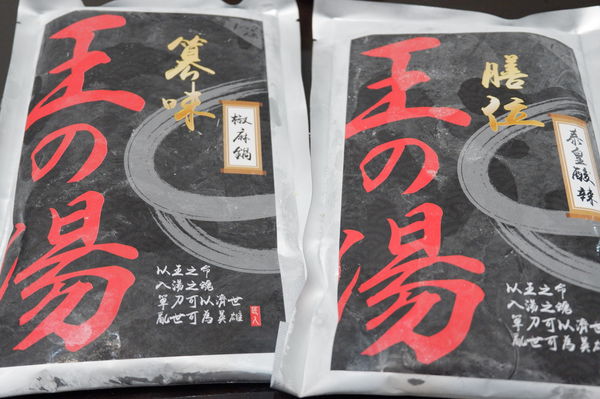 王の湯
篡味
椒麻鍋
以王之命
入湯之魂
軍刀可以濟世
亂世可為英雄
王の湯
膳位
泰皇酸辣
以王之命
入湯之魂
軍刀可以濟世
亂世可為英雄